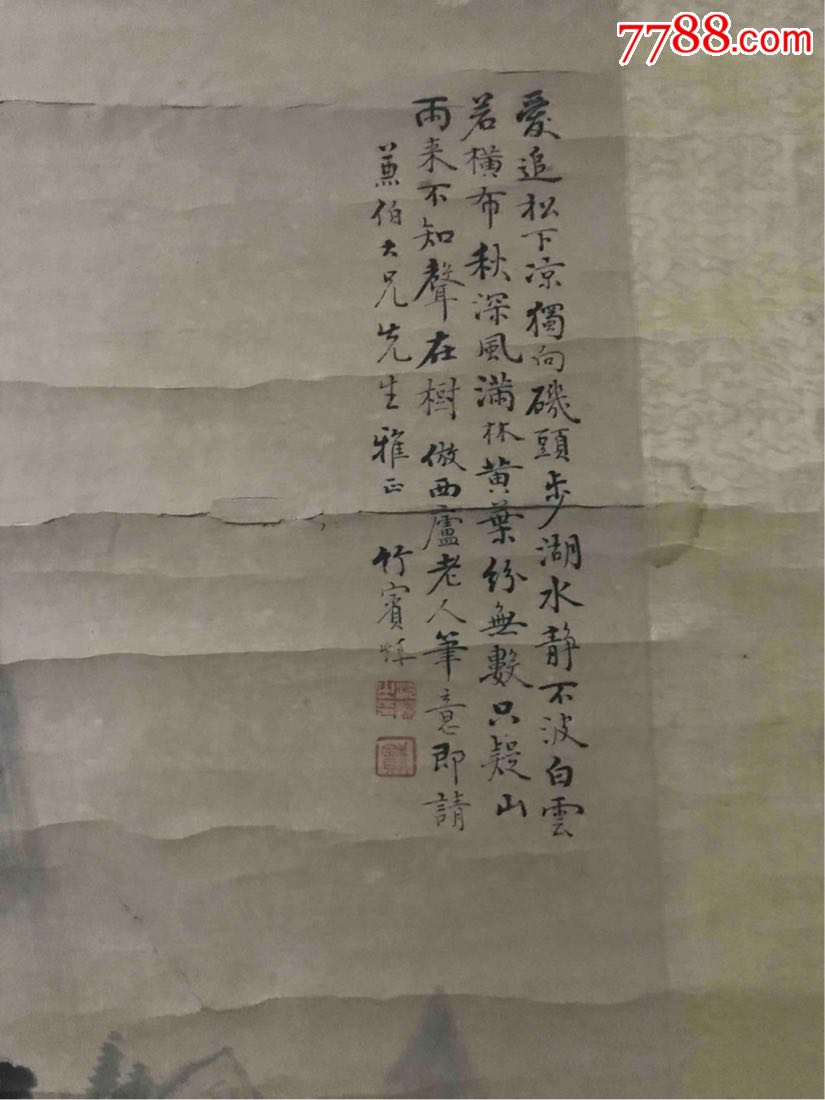 7788.com
愛追松下凉獨向磯頭步湖水静不波白雲
若橫布秋深風滿林黄葉紛無數只疑山
雨来不知聲在樹倣西廬老人筆意即請
蒹伯大兄先生雅正 竹賓